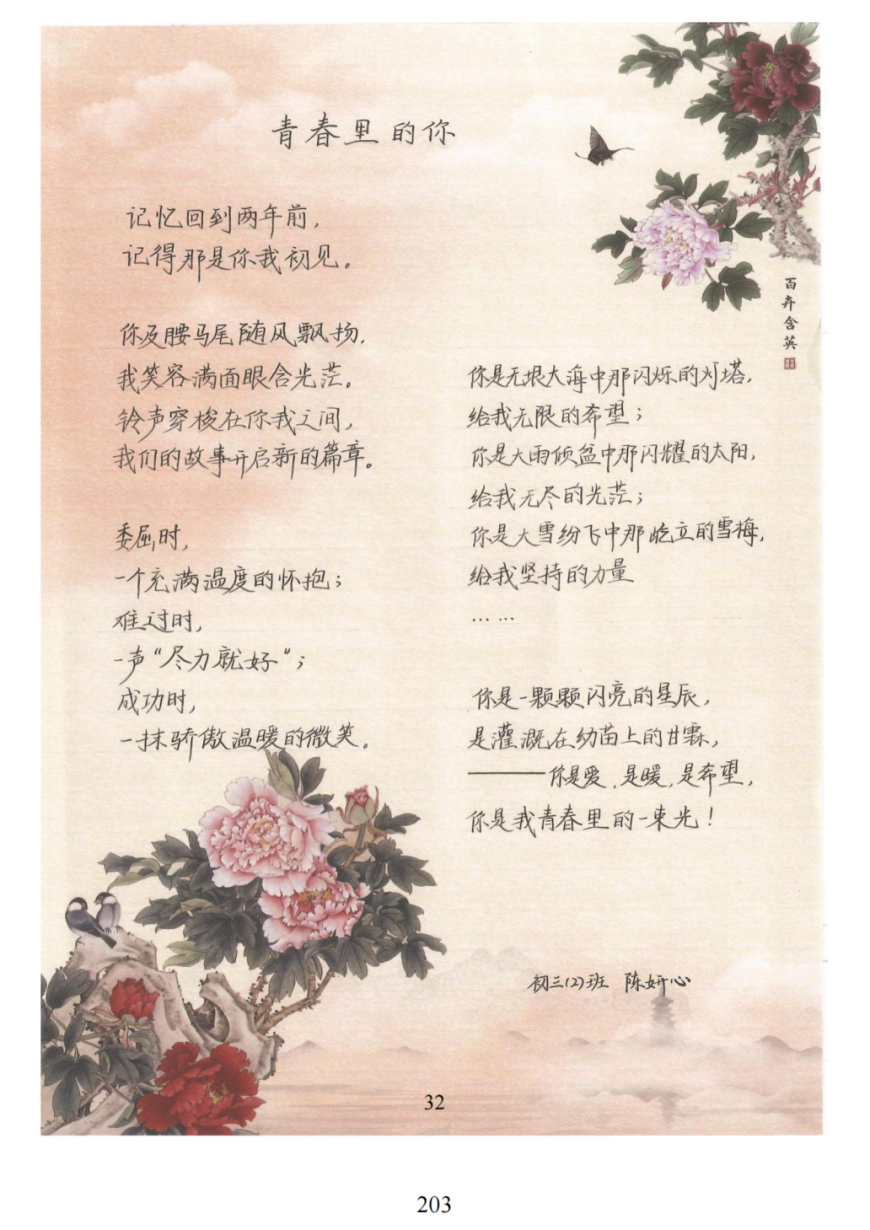 青春里的你
记忆回到两年前，
记得那是你我初见。
你及腰马尾随风飘扬，
我笑容满面眼含光茫。
铃声穿梭在你我之间，
我们的故事开启新的篇章。
委屈时，
一个充满温度的怀抱；
难过时，
一声“尽力就好”；
成功时，
一抹骄傲温暖的微笑。
你是无垠大海中那闪烁的灯塔，
给我无限的希望；
你是大雨倾盆中那闪耀的太阳，
给我无尽的光茫；
你是大雪纷飞中那屹立的雪梅，
给我坚持的力量
……
你是一颗颗闪亮的星辰，
是灌溉在幼苗上的甘霖，
——你是爱，是暖，是希望，
你是我青春里的一束光！
初三(2)班 陈妍心
百卉含英
32
203